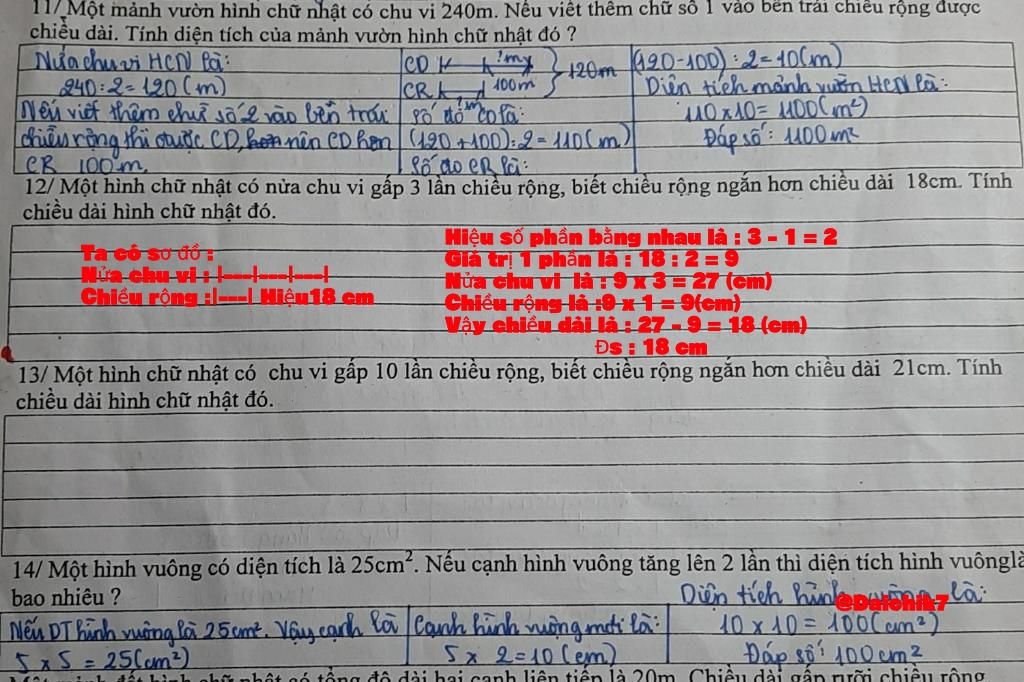 11/ Một mảnh vườn hình chữ nhật có chu vi 240m. Nếu viết thêm chữ số 1 vào bên trái chiều rộng được
chiều dài. Tính diện tích của mảnh vườn hình chữ nhật đó ?
Nửa chu vi HCN là:
240:2=120(m)
Nếu viết thêm chữ số 2 vào bên trái
chiều rộng thì được CD, nên CD hơn
CR 100m.
CD ?m
CR 100m
?m
120m
Số đo CD là:
(120+100):2=110(m)
Số đo CR là:
(120-100):2=10(m)
Diện tích mảnh vườn HCN là:
110x10=1100(m²)
Đáp số: 1100m²
12/ Một hình chữ nhật có nửa chu vi gấp 3 lần chiều rộng, biết chiều rộng ngắn hơn chiều dài 18cm. Tính
chiều dài hình chữ nhật đó.
Ta có sơ đồ :
Nửa chu vi : |---|---|---|
Chiều rộng :|---| Hiệu18 cm
Hiệu số phần bằng nhau là : 3 - 1 = 2
Giá trị 1 phần là : 18 : 2 = 9
Nửa chu vi là : 9 x 3 = 27 (cm)
Chiều rộng là :9 x 1 = 9(cm)
Vậy chiều dài là : 27 - 9 = 18 (cm)
Đs : 18 cm
13/ Một hình chữ nhật có chu vi gấp 10 lần chiều rộng, biết chiều rộng ngắn hơn chiều dài 21cm. Tính
chiều dài hình chữ nhật đó.
14/ Một hình vuông có diện tích là 25cm². Nếu cạnh hình vuông tăng lên 2 lần thì diện tích hình vuônglà
bao nhiêu ?
Nếu DT hình vuông là 25cm². Vậy cạnh là
5 x 5 = 25(cm²)
Cạnh hình vuông mới là:
5 x 2=10(cm)
Diện tích hình vuông là:
@Daichik7
10 x 10 = 100(cm²)
Đáp số: 100cm²
hình chữ nhật có tổng độ dài hai cạnh liên tiếp là 20m. Chiều dài gấp rưỡi chiều rộng